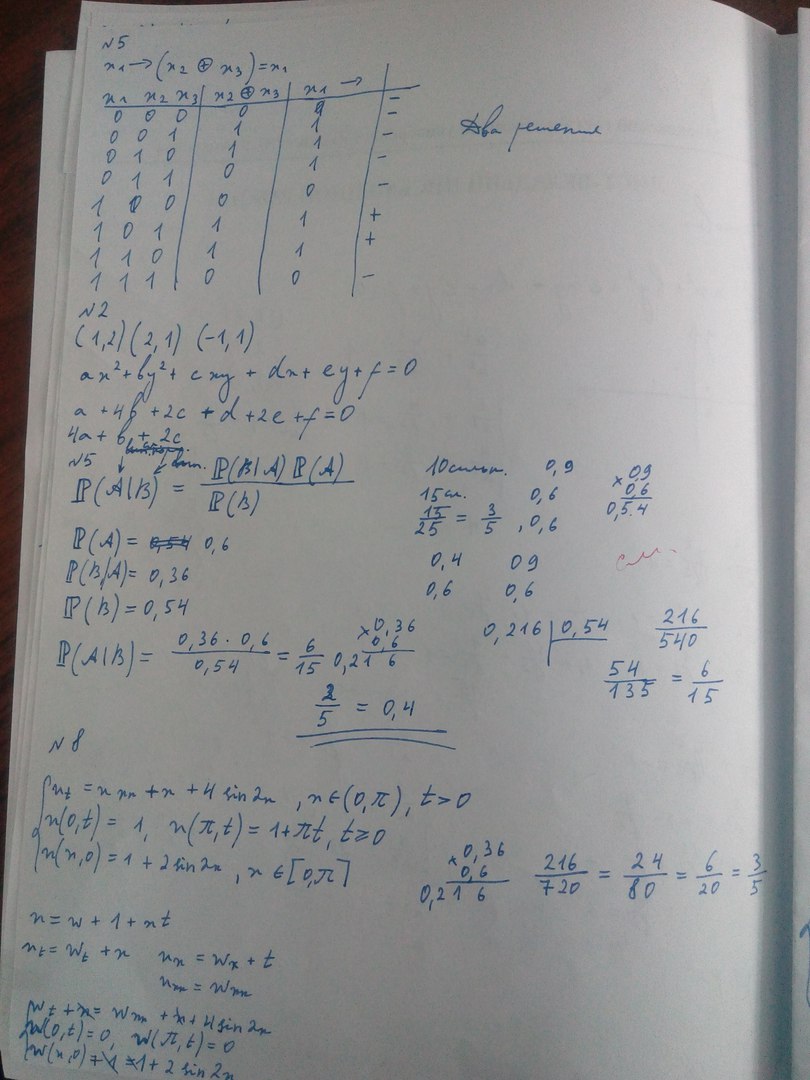 №5
x₁ → (x₂ ⊕ x₃) = x₁
x₁ x₂ x₃ | x₂ ⊕ x₃ | x₁ → |
0 0 0 | 0 | | –
0 0 1 | 1 | 1 | –
0 1 0 | 1 | 1 | –
0 1 1 | 0 | 1 | –
1 0 0 | 0 | 0 | –
1 0 1 | 1 | 1 | +
1 1 0 | 1 | 1 | +
1 1 1 | 0 | 0 | –
Два решения
№2
(1,2) (2,1) (-1,1)
ax² + by² + cxy + dx + ey + f = 0
a + 4b + 2c + d + 2e + f = 0
4a + b + 2c
№5
P(A|B) = P(B|A) P(A) / P(B)
P(A) = 0,54 0,6
P(B|A) = 0,36
P(B) = 0,54
P(A|B) = 0,36 · 0,6 / 0,54 = 6/15
2/5 = 0,4
10 сильн. 0,9
15 сл. 0,6
15/25 = 3/5 , 0,6
0,4 09
0,6 0,6
× 0,9
0,6
0,54
× 0,36
0,6
0,21 6
0,216 | 0,54
216/540
54/135 = 6/15
№8
u_t = u_xx + x + 4 sin 2x , x ∈ (0,π), t > 0
u(0,t) = 1, u(π,t) = 1 + πt, t ≥ 0
u(x,0) = 1 + 2 sin 2x , x ∈ [0,π]
× 0,36
0,6
0,21 6
216/720 = 24/80 = 6/20 = 3/5
u = w + 1 + xt
u_t = w_t + x u_x = w_x + t
u_xx = w_xx
w_t + x = w_xx + x + 4 sin 2x
w(0,t) = 0, w(π,t) = 0
w(x,0) + 1 = 1 + 2 sin 2x